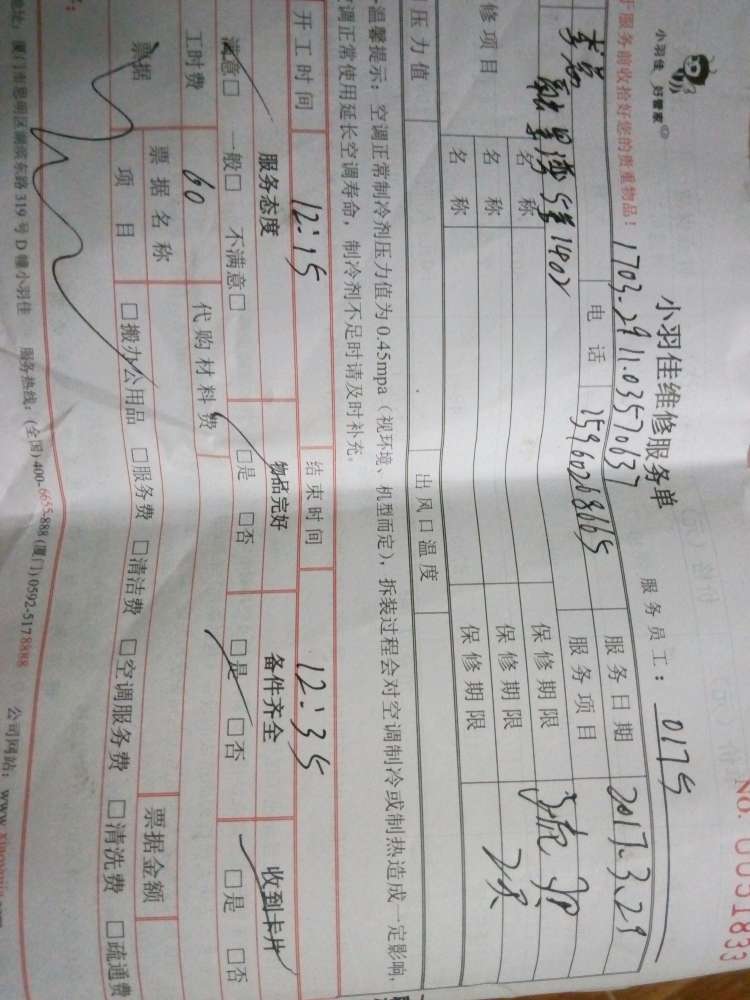 小羽佳 好管家
小羽佳维修服务单
NO. 0051833
服务前收拾好您的贵重物品！
1703.2911.03570637
服务员工：0175
电话 15960268665
服务日期 2017.3.29
服务项目
修项目
名称
保修期限
名称
保修期限
名称
保修期限
压力值
出风口温度
温馨提示：空调正常制冷剂压力值为0.45mpa（视环境、机型而定），拆装过程会对空调制冷或制热造成一定影响，
调正常使用延长空调寿命，制冷剂不足时请及时补充。
开工时间 12:15 结束时间 12:35
服务态度 物品完好 备件齐全 收到卡片
满意□ 一般□ 不满意□ □是 □否 □是 □否 □是 □否
工时费 60 代购材料费
票据 票据名称 票据金额
项目 □搬办公用品 □服务费 □清洁费 □空调服务费 □清洗费 □疏通费
地址：厦门市思明区湖滨东路319号D幢小羽佳 服务热线：(全国)400-6655-888 (厦门)0592-5178888 公司网站：www.